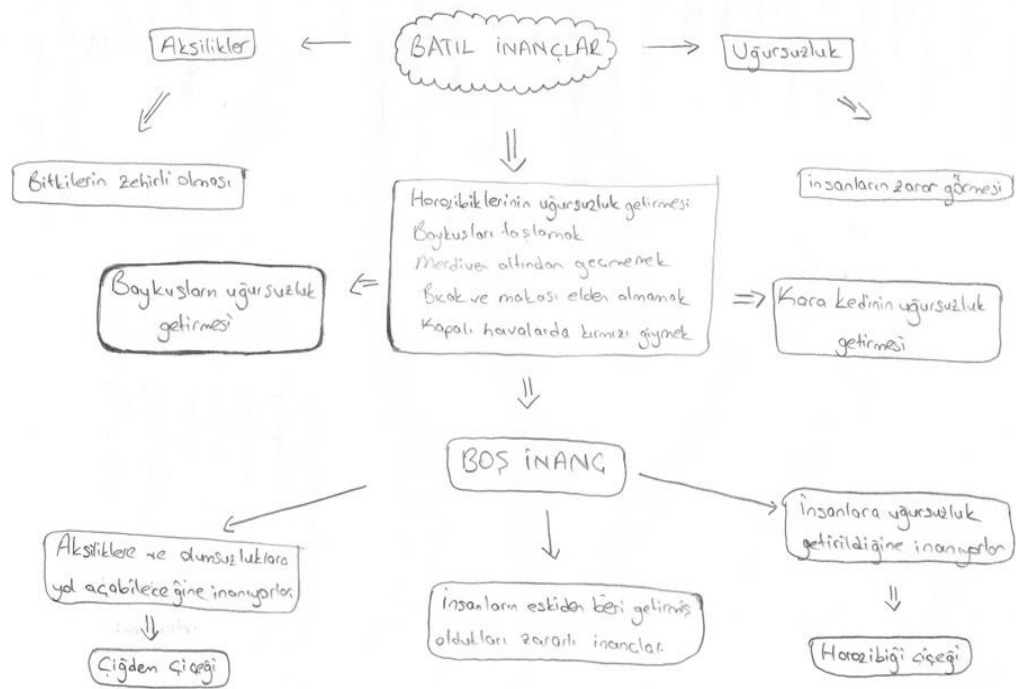 BATIL İNANÇLAR
Aksilikler
Uğursuzluk
Bitkilerin zehirli olması
Horozibiklerinin uğursuzluk getirmesi
Baykuşları taşlamak
Merdiven altından geçmemek
Bıçak ve makası elden almamak
Kapalı havalarda kırmızı giymek
insanların zarar görmesi
Baykuşların uğursuzluk
getirmesi
Kara kedinin uğursuzluk
getirmesi
BOŞ İNANÇ
Aksiliklere ve olumsuzluklara
yol açabileceğine inanıyorlar.
Çiğdem çiçeği
İnsanların eskiden beri getirmiş
oldukları zararlı inançlar.
İnsanlara uğursuzluk
getirildiğine inanıyorlar
Horozibiği çiçeği